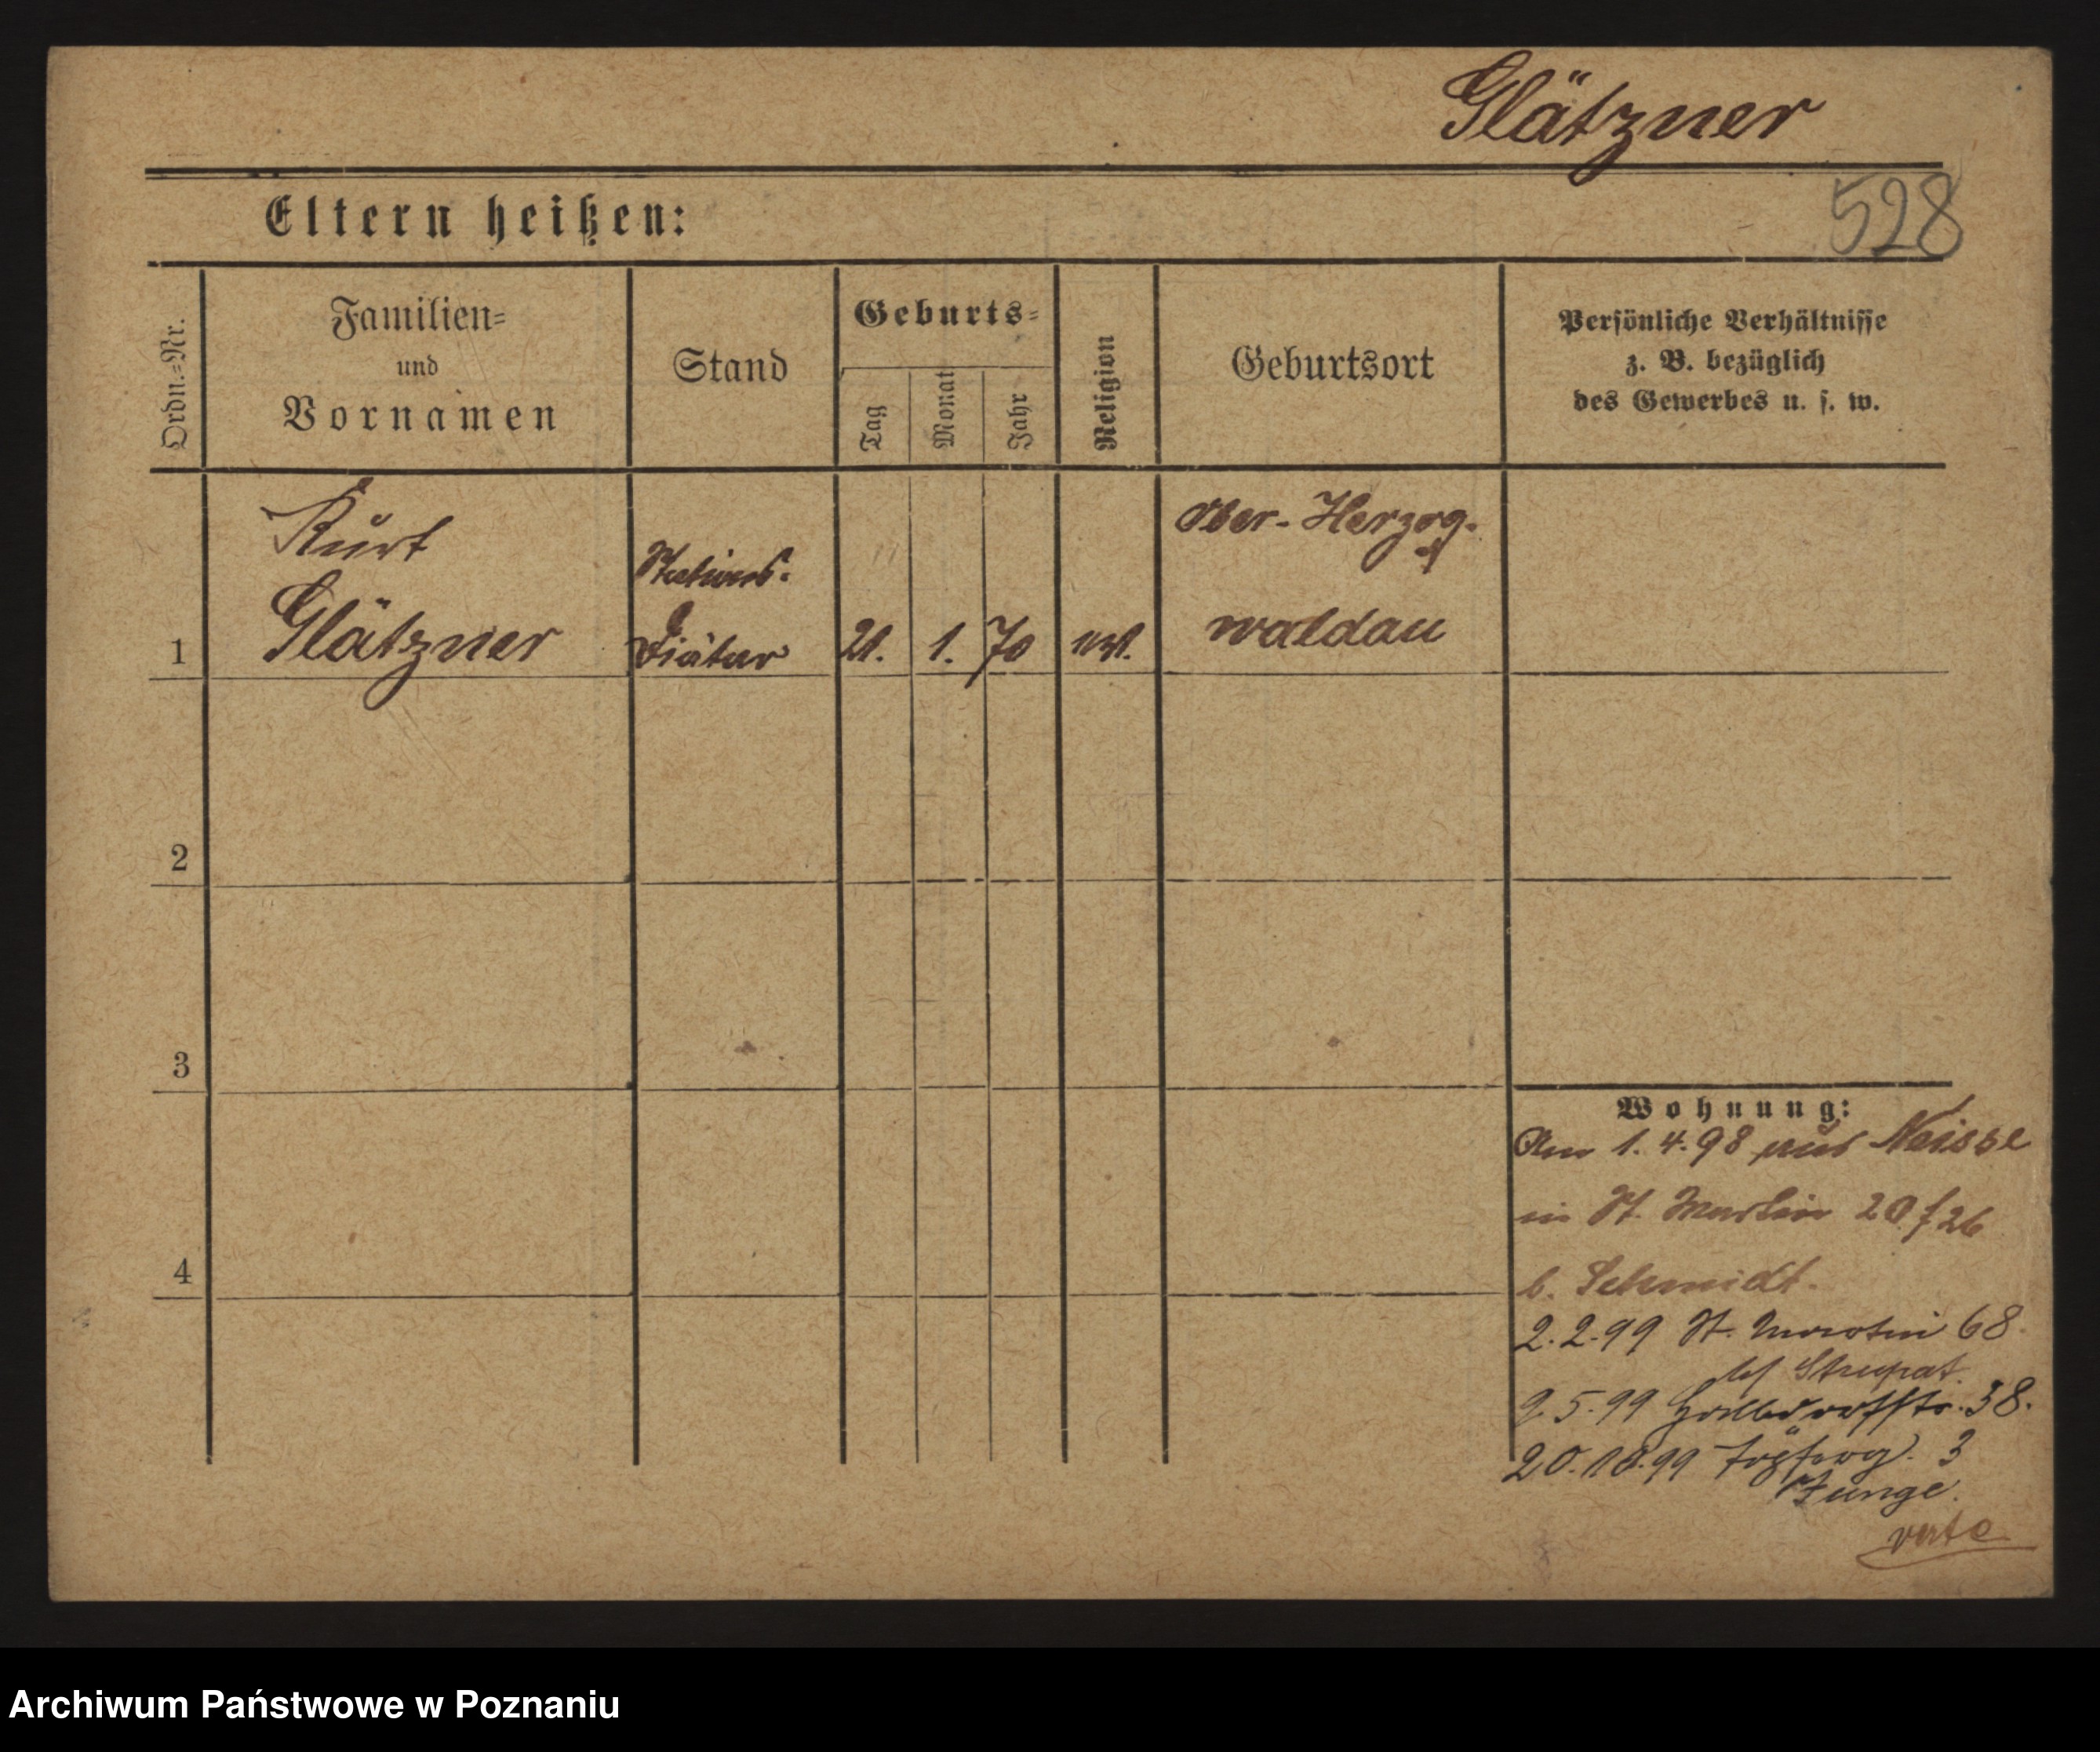 Glätzner
528
Eltern heißen:
Ordn.=Nr.
Familien=
und
Vornamen
Stand
Geburts=
Tag
Monat
Jahr
Religion
Geburtsort
Persönliche Verhältnisse
z. B. bezüglich
des Gewerbes u. s. w.
1
Kurt
Glätzner
Stations-
Diätar
21.
1.
70
evgl.
Ober-Herzog-
waldau
2
3
4
Wohnung:
Am 1.4.98 aus Neisse
in St. Martin 20/26
b. Schmidt.
2.2.99 St. Martin 68
bei
9.5.99 38.
20.10.99 3
Junge.
verte
Archiwum Państwowe w Poznaniu